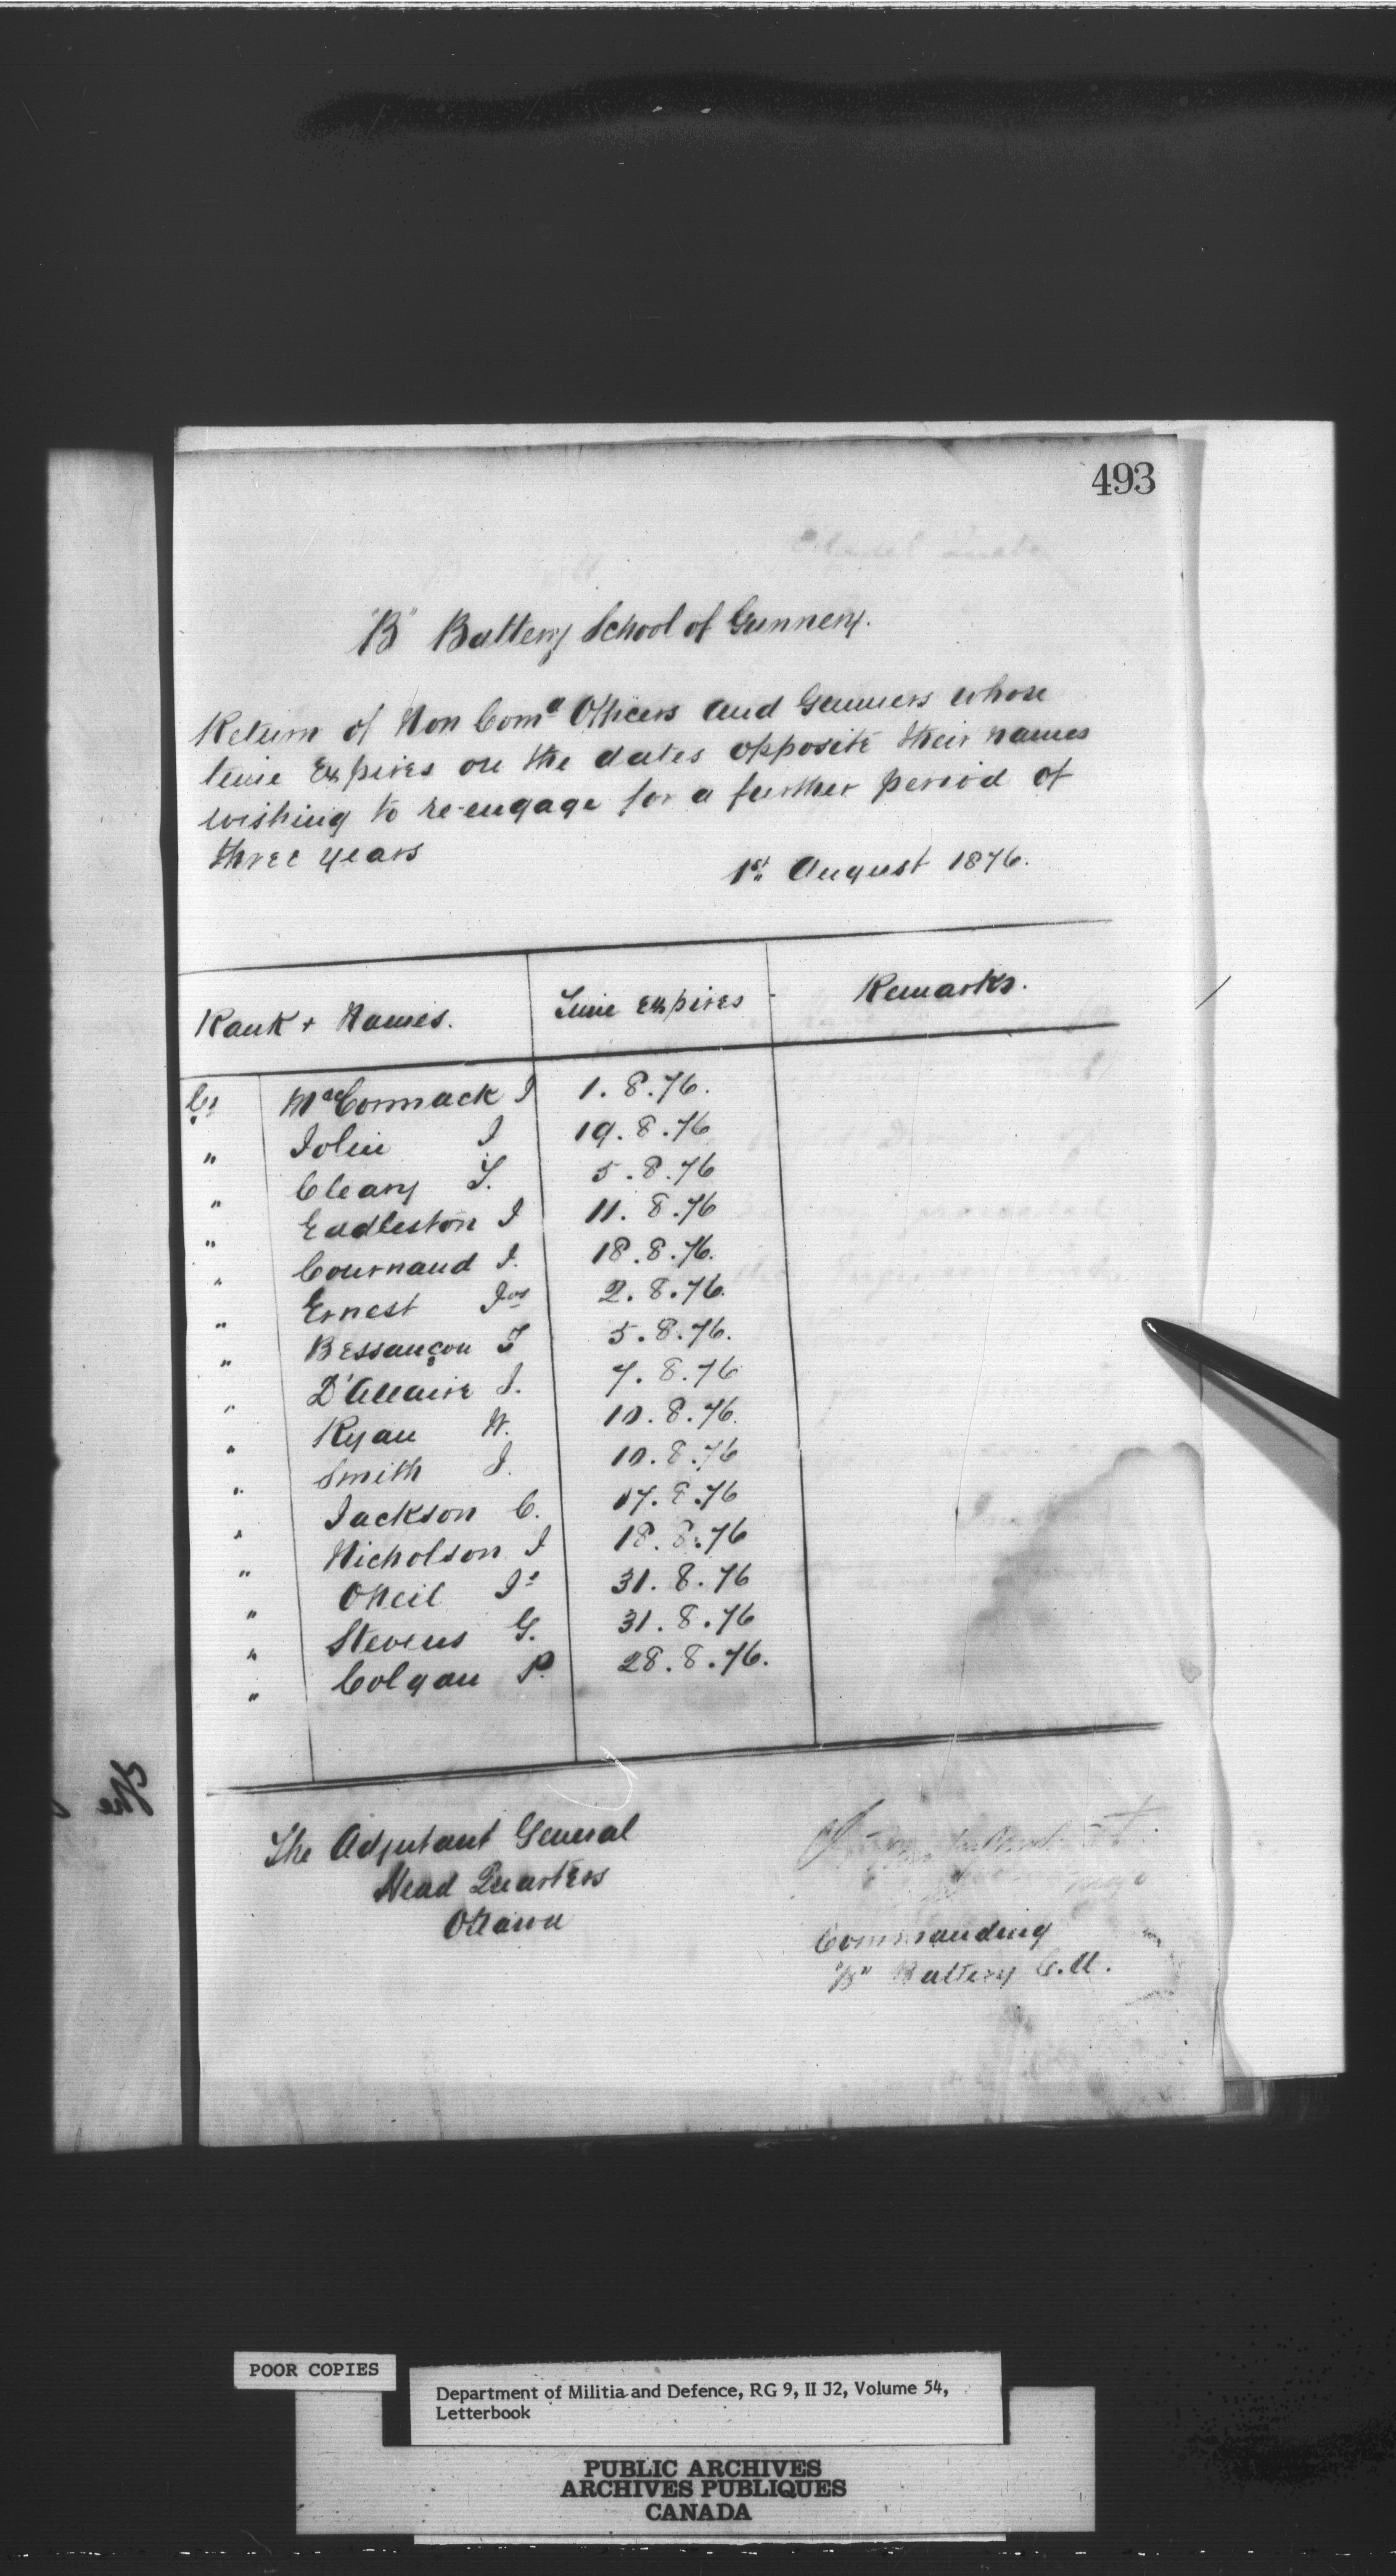 493
"B" Battery School of Gunnery.
Return of Non Comd Officers and Gunners whose
time Expires on the dates opposite their names
wishing to re-engage for a further period of
three years
1st August 1876.
Rank + Names. Time Expires Remarks.
Gr McCormack J 1.8.76.
" Jolin J 19.8.76
" Cleary T. 5.8.76
" Eadleston J 11.8.76
" Cournaud J. 18.8.76.
" Ernest Jos 2.8.76.
" Bessançon J 5.8.76.
" D'Allaire J. 7.8.76
" Ryan W. 10.8.76.
" Smith J. 10.8.76
" Jackson C. 17.8.76
" Nicholson J 18.8.76
" ONeil Js 31.8.76
" Stevens G. 31.8.76
" Colgan P. 28.8.76.
The Adjutant General
Head Quarters
Ottawa
Commanding
"B" Battery G.
The
POOR COPIES
Department of Militia and Defence, RG 9, II J2, Volume 54,
Letterbook
PUBLIC ARCHIVES
ARCHIVES PUBLIQUES
CANADA